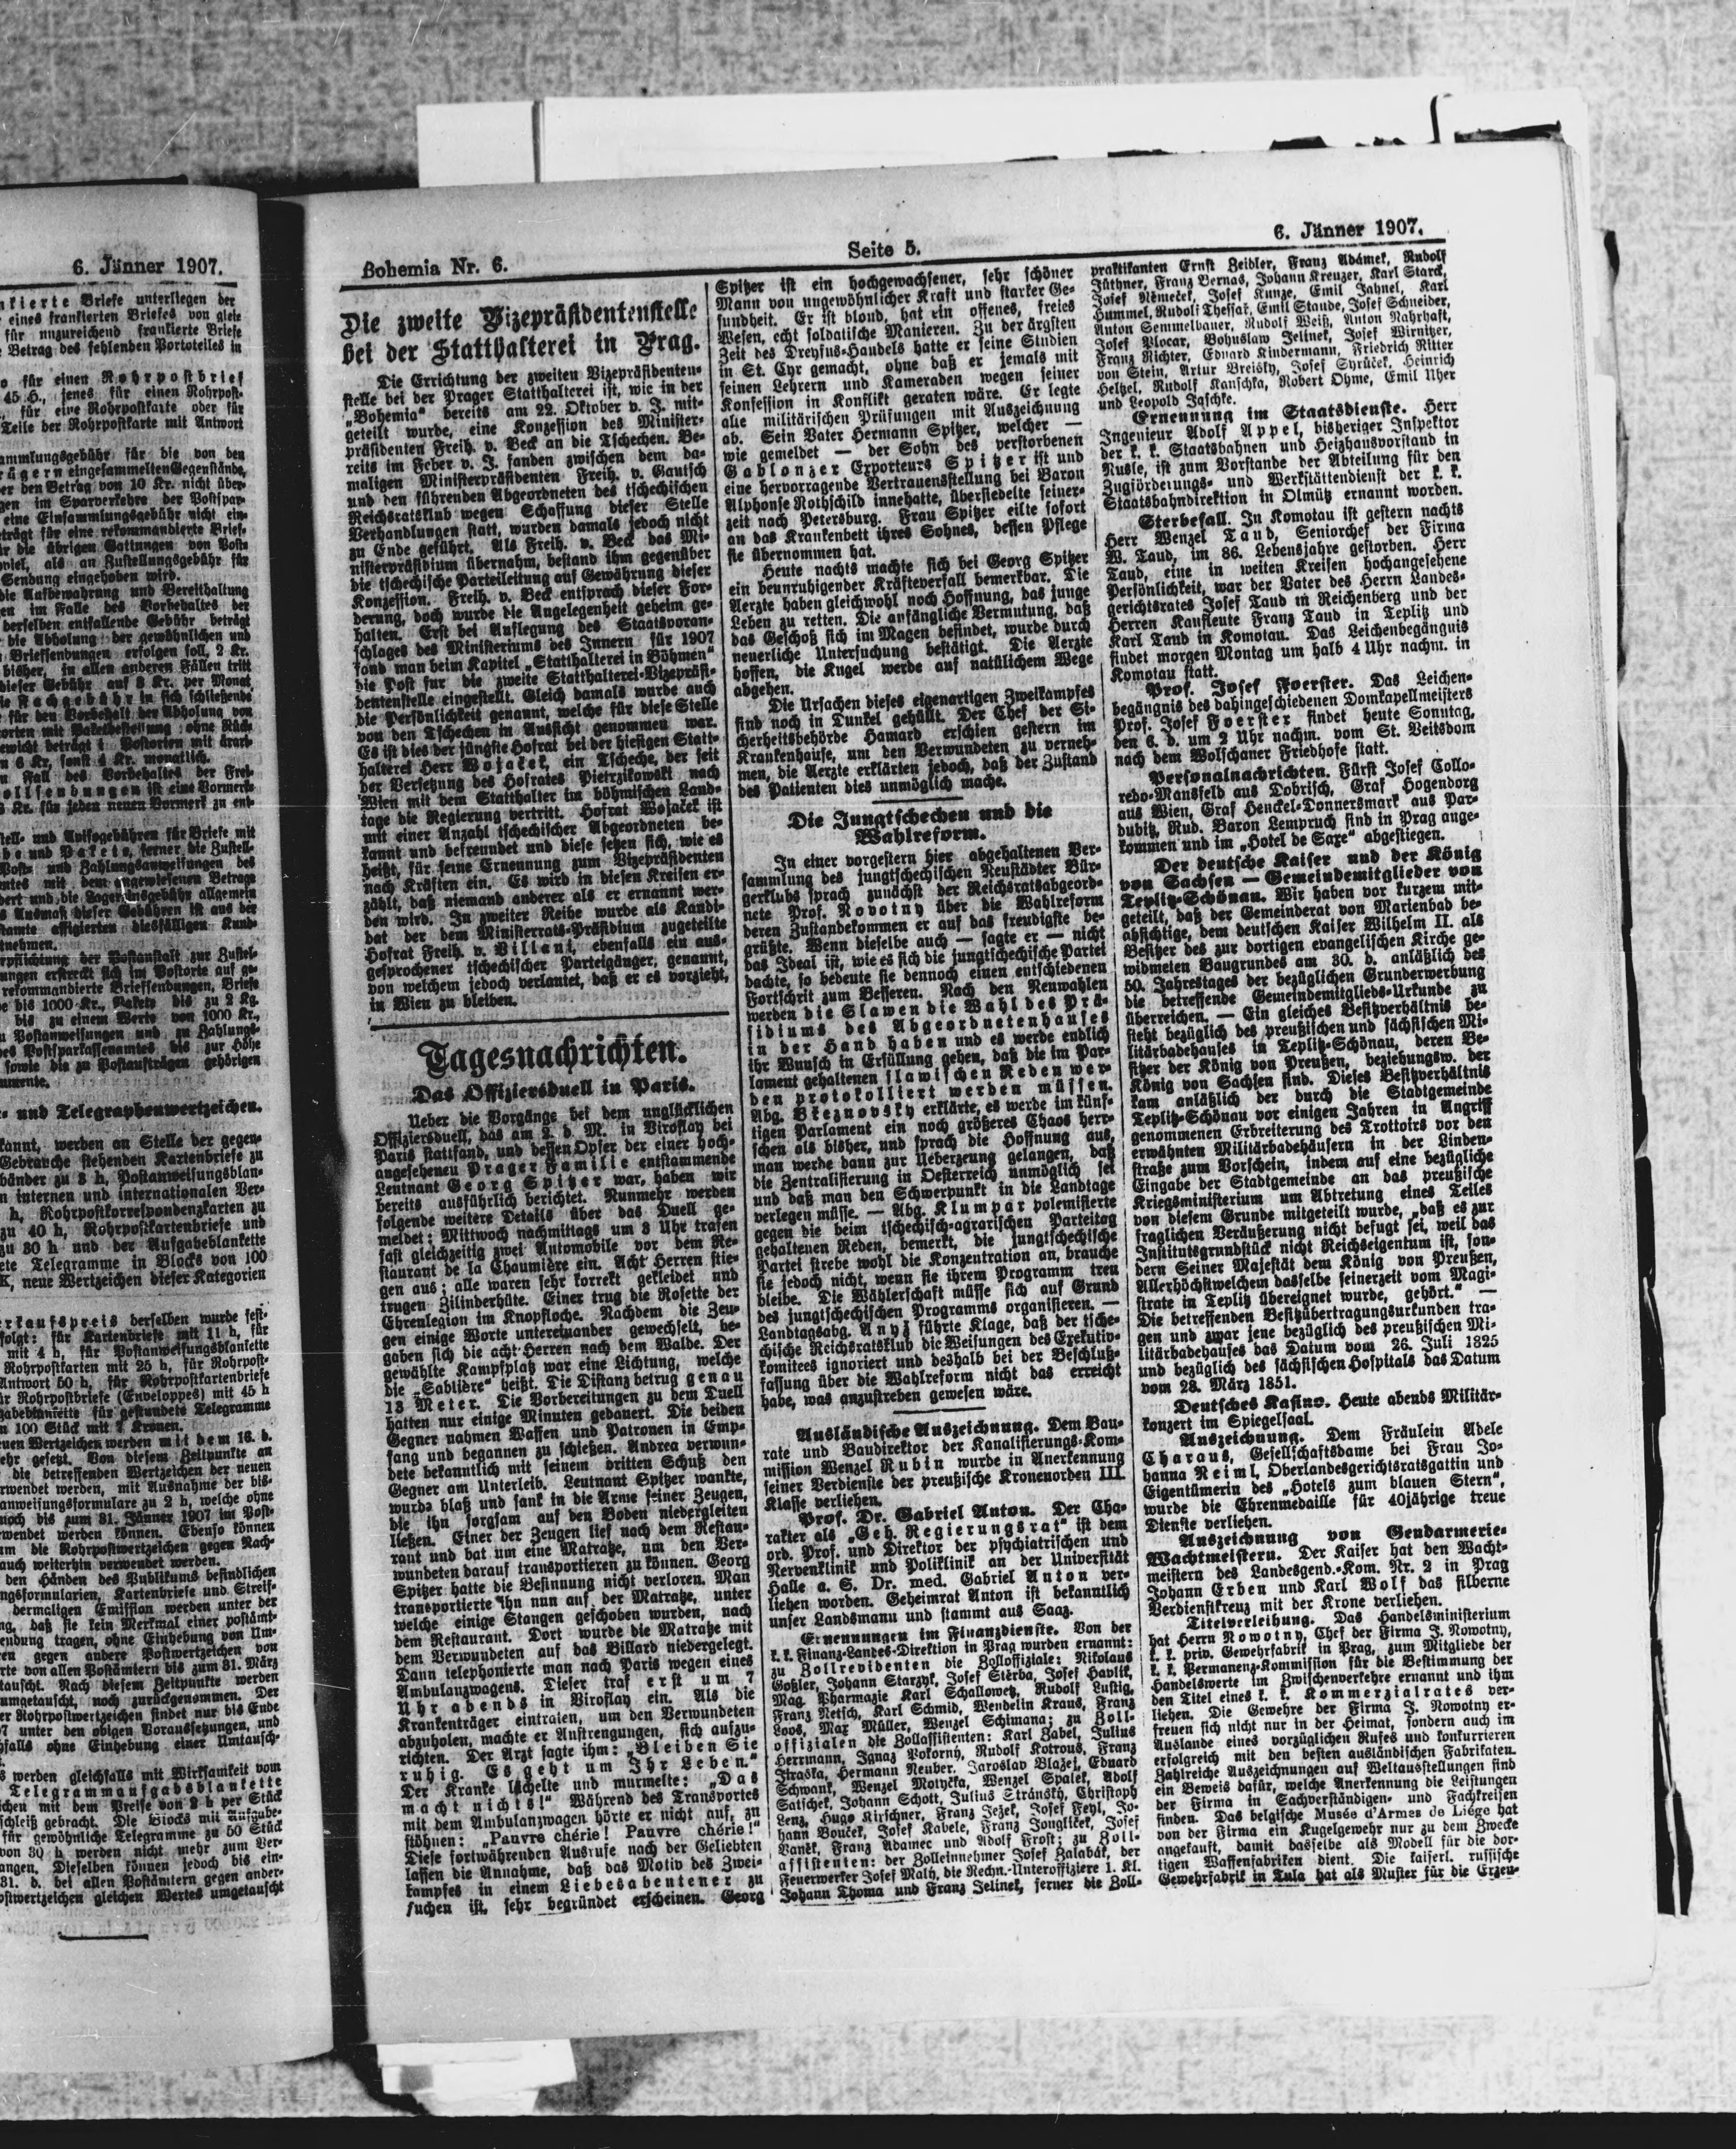 6. Jänner 1907.
nkierte Briefe unterliegen der
eines frankierten Briefes von gleic
für unzureichend frankierte Briefe
Betrag des fehlenden Portoteiles in
o für einen Rohrpostbrief
45 H., jenes für einen Rohrpost-
für eine Rohrpostkarte oder für
Teile der Rohrpostkarte mit Antwort
ammlungsgebühr für die von den
rägern eingesammelten Gegenstände,
er den Betrag von 10 Kr. nicht über-
gen im Sparverkehre der Postspar-
eine Einsammlungsgebühr nicht ein-
eträgt für eine rekommandierte Brief-
ür die übrigen Gattungen von Post-
viel, als an Zustellungsgebühr für
Sendung eingehoben wird.
die Aufbewahrung und Bereithaltung
en im Falle des Vorbehaltes der
derselben entfallende Gebühr beträgt
die Abholung der gewöhnlichen und
Briefsendungen erfolgen soll, 2 Kr.
bisher, in allen anderen Fällen tritt
dieser Gebühr auf 3 Kr. per Monat
und Telegraphenwertzeichen.
kannt, werden an Stelle der gegen-
Gebrauche stehenden Kartenbriefe zu
bänder zu 3 h, Postanweisungsblan-
n internen und internationalen Ver-
h, Rohrpostkorrespondenzkarten zu
zu 40 h, Rohrpostkartenbriefe und
zu 30 h und der Aufgabeblankette
ete Telegramme in Blocks von 100
K, neue Wertzeichen dieser Kategorien
erkaufspreis derselben wurde fest-
folgt: für Kartenbriefe mit 11 h, für
mit 4 h, für Postanweisungsblankette
Rohrpostkarten mit 25 h, für Rohrpost-
Antwort 50 h, für Rohrpostkartenbriefe
ür Rohrpostbriefe (Enveloppes) mit 45 h
gabeblankette für gestundete Telegramme
n 100 Stück mit 7 Kronen.
uen Wertzeichen werden mit dem 16. d.
ehr gesetzt. Von diesem Zeitpunkte an
die betreffenden Wertzeichen der neuen
rwendet werden, mit Ausnahme der bis-
anweisungsformulare zu 2 h, welche ohne
noch bis zum 31. Jänner 1907 im Post-
rwendet werden können. Ebenso können
um die Rohrpostwertzeichen gegen Nach-
auch weiterhin verwendet werden.
den Händen des Publikums befindlichen
ngsformularien, Kartenbriefe und Streif-
dermaligen Emission werden unter der
ng, daß sie kein Merkmal einer postämt-
endung tragen, ohne Einhebung von Um-
ren gegen andere Postwertzeichen von
rte von allen Postämtern bis zum 31. März
tauscht. Nach diesem Zeitpunkte werden
umgetauscht, noch zurückgenommen. Der
er Rohrpostwertzeichen findet nur bis Ende
7 unter den obigen Voraussetzungen, und
falls ohne Einhebung einer Umtausch-
s werden gleichfalls mit Wirksamkeit vom
Telegrammaufgabsblankette
ichen mit dem Preise von 2 h per Stück
schleiß gebracht. Die Blocks mit Aufgabe-
für gewöhnliche Telegramme zu 50 Stück
von 30 h werden nicht mehr zum Ver-
angen. Dieselben können jedoch bis ein-
31. d. bei allen Postämtern gegen ander-
ostwertzeichen gleichen Wertes umgetauscht
Bohemia Nr. 6.
Seite 5.
6. Jänner 1907.
Die zweite Vizepräsidentenstelle
bei der Statthalterei in Prag.
Die Errichtung der zweiten Vizepräsidenten-
stelle bei der Prager Statthalterei ist, wie in der
„Bohemia“ bereits am 22. Oktober v. J. mit-
geteilt wurde, eine Konzession des Minister-
präsidenten Freih. v. Beck an die Tschechen. Be-
reits im Feber v. J. fanden zwischen dem da-
maligen Ministerpräsidenten Freih. v. Gautsch
und den führenden Abgeordneten des tschechischen
Reichsratsklub wegen Schaffung dieser Stelle
Verhandlungen statt, wurden damals jedoch nicht
zu Ende geführt. Als Freih. v. Beck das Mi-
nisterpräsidium übernahm, bestand ihm gegenüber
die tschechische Parteileitung auf Gewährung dieser
Konzession. Freih. v. Beck entsprach dieser For-
derung, doch wurde die Angelegenheit geheim ge-
halten. Erst bei Auflegung des Staatsvoran-
schlages des Ministeriums des Innern für 1907
fand man beim Kapitel „Statthalterei in Böhmen“
die Post für die zweite Statthalterei-Vizepräsi-
dentenstelle eingestellt. Gleich damals wurde auch
die Persönlichkeit genannt, welche für diese Stelle
von den Tschechen in Aussicht genommen war.
Es ist dies der jüngste Hofrat bei der hiesigen Statt-
halterei Herr Wojaček, ein Tscheche, der seit
der Versetzung des Hofrates Pietrzikowski nach
Wien mit dem Statthalter im böhmischen Land-
tage die Regierung vertritt. Hofrat Wojaček ist
mit einer Anzahl tschechischer Abgeordneten be-
kannt und befreundet und diese setzen sich, wie es
heißt, für seine Ernennung zum Vizepräsidenten
nach Kräften ein. Es wird in diesen Kreisen er-
zählt, daß niemand anderer als er ernannt wer-
den wird. In zweiter Reihe wurde als Kandi-
dat der dem Ministerrats-Präsidium zugeteilte
Hofrat Freih. v. Villani, ebenfalls ein aus-
gesprochener tschechischer Parteigänger, genannt,
von welchem jedoch verlautet, daß er es vorzieht,
in Wien zu bleiben.
Tagesnachrichten.
Das Offiziersduell in Paris.
Ueber die Vorgänge bei dem unglücklichen
Offiziersduell, das am 2. d. M. in Viroflay bei
Paris stattfand, und dessen Opfer der einer hoch-
angesehenen Prager Familie entstammende
Leutnant Georg Spitzer war, haben wir
bereits ausführlich berichtet. Nunmehr werden
folgende weitere Details über das Duell ge-
meldet: Mittwoch nachmittags um 3 Uhr trafen
fast gleichzeitig zwei Automobile vor dem Re-
staurant de la Chaumière ein. Acht Herren stie-
gen aus; alle waren sehr korrekt gekleidet und
trugen Zilinderhüte. Einer trug die Rosette der
Ehrenlegion im Knopfloche. Nachdem die Zeu-
gen einige Worte untereinander gewechselt, be-
gaben sich die acht Herren nach dem Walde. Der
gewählte Kampfplatz war eine Lichtung, welche
die „Sablière“ heißt. Die Distanz betrug genau
18 Meter. Die Vorbereitungen zu dem Duell
hatten nur einige Minuten gedauert. Die beiden
Gegner nahmen Waffen und Patronen in Emp-
fang und begannen zu schießen. Andrea verwun-
dete bekanntlich mit seinem dritten Schuß den
Gegner am Unterleib. Leutnant Spitzer wankte,
wurde blaß und sank in die Arme seiner Zeugen,
die ihn sorgsam auf den Boden niedergleiten
ließen. Einer der Zeugen lief nach dem Restau-
rant und bat um eine Matratze, um den Ver-
wundeten darauf transportieren zu können. Georg
Spitzer hatte die Besinnung nicht verloren. Man
transportierte ihn nun auf der Matratze, unter
welche einige Stangen geschoben wurden, nach
dem Restaurant. Dort wurde die Matratze mit
dem Verwundeten auf das Billard niedergelegt.
Dann telephonierte man nach Paris wegen eines
Ambulanzwagens. Dieser traf erst um 7
Uhr abends in Viroflay ein. Als die
Krankenträger eintraten, um den Verwundeten
abzuholen, machte er Anstrengungen, sich aufzu-
richten. Der Arzt sagte ihm: „Bleiben Sie
ruhig. Es geht um Ihr Leben.“
Der Kranke lächelte und murmelte: „Das
macht nichts!“ Während des Transportes
mit dem Ambulanzwagen hörte er nicht auf, zu
stöhnen: „Pauvre chérie! Pauvre chérie!“
Diese fortwährenden Ausrufe nach der Geliebten
lassen die Annahme, daß das Motiv des Zwei-
kampfes in einem Liebesabenteuer zu
suchen ist, sehr begründet erscheinen. Georg
Spitzer ist ein hochgewachsener, sehr schöner
Mann von ungewöhnlicher Kraft und starker Ge-
sundheit. Er ist blond, hat ein offenes, freies
Wesen, echt soldatische Manieren. Zu der ärgsten
Zeit des Dreyfus-Handels hatte er seine Studien
in St. Cyr gemacht, ohne daß er jemals mit
seinen Lehrern und Kameraden wegen seiner
Konfession in Konflikt geraten wäre. Er legte
alle militärischen Prüfungen mit Auszeichnung
ab. Sein Vater Hermann Spitzer, welcher —
wie gemeldet — der Sohn des verstorbenen
Gablonzer Exporteurs Spitzer ist und
eine hervorragende Vertrauensstellung bei Baron
Alphonse Rothschild innehatte, übersiedelte seiner-
zeit nach Petersburg. Frau Spitzer eilte sofort
an das Krankenbett ihres Sohnes, dessen Pflege
sie übernommen hat.
Heute nachts machte sich bei Georg Spitzer
ein beunruhigender Kräfteverfall bemerkbar. Die
Aerzte haben gleichwohl noch Hoffnung, das junge
Leben zu retten. Die anfängliche Vermutung, daß
das Geschoß sich im Magen befindet, wurde durch
neuerliche Untersuchung bestätigt. Die Aerzte
hoffen, die Kugel werde auf natülichem Wege
abgehen.
Die Ursachen dieses eigenartigen Zweikampfes
sind noch in Dunkel gehüllt. Der Chef der Si-
cherheitsbehörde Hamard erschien gestern im
Krankenhause, um den Verwundeten zu verneh-
men, die Aerzte erklärten jedoch, daß der Zustand
des Patienten dies unmöglich mache.
Die Jungtschechen und die
Wahlreform.
In einer vorgestern hier abgehaltenen Ver-
sammlung des jungtschechischen Neustädter Bür-
gerklubs sprach zunächst der Reichsratsabgeord-
nete Prof. Novotny über die Wahlreform
deren Zustandekommen er auf das freudigste be-
grüßte. Wenn dieselbe auch — sagte er — nicht
das Ideal ist, wie es sich die jungtschechische Partei
dachte, so bedeute sie dennoch einen entschiedenen
Fortschrit zum Besseren. Nach den Neuwahlen
werden die Slawen die Wahl des Prä-
sidiums des Abgeordnetenhauses
in der Hand haben und es werde endlich
ihr Wunsch in Erfüllung gehen, daß die im Par-
lament gehaltenen slawischen Reden wer-
den protokolliert werden müssen.
Abg. Březnovsky erklärte, es werde im künf-
tigen Parlament ein noch größeres Chaos herr-
schen als bisher, und sprach die Hoffnung aus,
man werde dann zur Ueberzeung gelangen, daß
die Zentralisierung in Oesterreich unmöglich sei
und daß man den Schwerpunkt in die Landtage
verlegen müsse. — Abg. Klumpar polemisierte
gegen die beim tschechisch-agrarischen Parteitag
gehaltenen Reden, bemerkt, die jungtschechische
Partei strebe wohl die Konzentration an, brauche
sie jedoch nicht, wenn sie ihrem Programm treu
bleibe. Die Wählerschaft müsse sich auf Grund
des jungtschechischen Programms organisieren. —
Landtagsabg. Anyž führte Klage, daß der tsche-
chische Reichsratsklub die Weisungen des Exekutiv-
komitees ignoriert und deshalb bei der Beschluß-
fassung über die Wahlreform nicht das erreicht
habe, was anzustreben gewesen wäre.
Ausländische Auszeichnung. Dem Bau-
rate und Baudirektor der Kanalisierungs-Kom-
mission Wenzel Rubin wurde in Anerkennung
seiner Verdienste der preußische Kronenorden III.
Klasse verliehen.
Prof. Dr. Gabriel Anton. Der Cha-
rakter als „Geh. Regierungsrat“ ist dem
ord. Prof. und Direktor der psychiatrischen und
Nervenklinik und Poliklinik an der Universität
Halle a. S. Dr. med. Gabriel Anton ver-
liehen worden. Geheimrat Anton ist bekanntlich
unser Landsmann und stammt aus Saaz.
Ernennungen im Finanzdienste. Von der
k. k. Finanz-Landes-Direktion in Prag wurden ernannt:
zu Zollrevidenten die Zolloffiziale: Nikolaus
Goßler, Johann Starzyk, Josef Stérba, Josef Havlik,
Mag. Pharmazie Karl Schallowetz, Rudolf Lustig,
Franz Netsch, Karl Schmid, Wendelin Kraus, Franz
Loos, Max Müller, Wenzel Schimana; zu Zoll-
offizialen die Zollassistenten: Karl Zabel, Julius
Herrmann, Ignaz Pokorny, Rudolf Kotrous, Franz
Jiraska, Hermann Neuber, Jaroslav Blažej, Eduard
Schwank, Wenzel Motyčka, Wenzel Spalek, Adolf
Satischek, Johann Schott, Julius Stránsky, Christoph
Lenz, Hugo Kirschner, Franz Ježek, Josef Feyl, Jo-
hann Bouček, Josef Kabele, Franz Jonglíček, Josef
Vaněk, Franz Adamec und Adolf Frost; zu Zoll-
assistenten: der Zolleinnehmer Josef Zalabák, der
Feuerwerker Josef Maly, die Rechn.-Unteroffiziere 1. Kl.
Johann Thoma und Franz Jelinek, ferner die Zoll-
praktikanten Ernst Zeidler, Franz Adámek, Rudolf
Jüthner, Franz Bernas, Johann Kreuzer, Karl Starck,
Josef Němeček, Josef Kunze, Emil Jahnel, Karl
Hummel, Rudolf Thessař, Emil Staude, Josef Schneider,
Anton Semmelbauer, Rudolf Weiß, Anton Nahrhaft,
Josef Plocar, Bohuslaw Jelinek, Josef Wirnitzer,
Franz Richter, Eduard Kindermann, Friedrich Ritter
von Stein, Artur Breisky, Josef Syrůček, Heinrich
Helzel, Rudolf Kanschka, Robert Ohme, Emil Uher
und Leopold Jaschke.
Ernennung im Staatsdienste. Herr
Ingenieur Adolf Appel, bisheriger Inspektor
der k. k. Staatsbahnen und Heizhausvorstand in
Nusle, ist zum Vorstande der Abteilung für den
Zugförderungs- und Werkstättendienst der k. k.
Staatsbahndirektion in Olmütz ernannt worden.
Sterbefall. In Komotau ist gestern nachts
Herr Wenzel Taud, Seniorchef der Firma
W. Taud, im 86. Lebensjahre gestorben. Herr
Taud, eine in weiten Kreisen hochangesehene
Persönlichkeit, war der Vater des Herrn Landes-
gerichtsrates Josef Taud in Reichenberg und der
Herren Kaufleute Franz Taud in Teplitz und
Karl Taud in Komotau. Das Leichenbegängnis
findet morgen Montag um halb 4 Uhr nachm. in
Komotau statt.
Prof. Josef Foerster. Das Leichen-
begängnis des dahingeschiedenen Domkapellmeisters
Prof. Josef Foerster findet heute Sonntag,
den 6. d. um 2 Uhr nachm. vom St. Veitsdom
nach dem Wolschaner Friedhofe statt.
Personalnachrichten. Fürst Josef Collo-
redo-Mansfeld aus Dobrisch, Graf Hogendorg
aus Wien, Graf Henckel-Donnersmark aus Par-
dubitz, Rud. Baron Lempruch sind in Prag ange-
kommen und im „Hotel de Saxe“ abgestiegen.
Der deutsche Kaiser und der König
von Sachsen — Gemeindemitglieder von
Teplitz-Schönau. Wir haben vor kurzem mit-
geteilt, daß der Gemeinderat von Marienbad be-
absichtige, dem deutschen Kaiser Wilhelm II. als
Besitzer des zur dortigen evangelischen Kirche ge-
widmeten Baugrundes am 30. d. anläßlich des
50. Jahrestages der bezüglichen Grunderwerbung
die betreffende Gemeindemitglieds-Urkunde zu
überreichen. — Ein gleiches Besitzverhältnis be-
steht bezüglich des preußischen und sächsischen Mi-
litärbadehauses in Teplitz-Schönau, deren Be-
sitzer der König von Preußen, beziehungsw. der
König von Sachsen sind. Dieses Besitzverhältnis
kam anläßlich der durch die Stadtgemeinde
Teplitz-Schönau vor einigen Jahren in Angriff
genommenen Erbreiterung des Trottoirs vor den
erwähnten Militärbadehäusern in der Linden-
straße zum Vorschein, indem auf eine bezügliche
Eingabe der Stadtgemeinde an das preußische
Kriegsministerium um Abtretung eines Teiles
von diesem Grunde mitgeteilt wurde, „daß es zur
fraglichen Veräußerung nicht befugt sei, weil das
Institutsgrundstück nicht Reichseigentum ist, son-
dern Seiner Majestät dem König von Preußen,
Allerhöchstwelchem dasselbe seinerzeit vom Magi-
strate in Teplitz übereignet wurde, gehört.“ —
Die betreffenden Besitzübertragungsurkunden tra-
gen und zwar jene bezüglich des preußischen Mi-
litärbadehauses das Datum vom 26. Juli 1825
und bezüglich des sächsischen Hospitals das Datum
vom 28. März 1851.
Deutsches Kasino. Heute abends Militär-
konzert im Spiegelsaal.
Auszeichnung. Dem Fräulein Adele
Charaus, Gesellschaftsdame bei Frau Jo-
hanna Reiml, Oberlandesgerichtsratsgattin und
Eigentümerin des „Hotels zum blauen Stern“,
wurde die Ehrenmedaille für 40jährige treue
Dienste verliehen.
Auszeichnung von Gendarmerie-
Wachtmeistern. Der Kaiser hat den Wacht-
meistern des Landesgend.-Kom. Nr. 2 in Prag
Johann Erben und Karl Wolf das silberne
Verdienstkreuz mit der Krone verliehen.
Titelverleihung. Das Handelsministerium
hat Herrn Nowotny, Chef der Firma J. Nowotny,
k. k. priv. Gewehrfabrik in Prag, zum Mitgliede der
k. k. Permanenz-Kommission für die Bestimmung der
Handelswerte im Zwischenverkehre ernannt und ihm
den Titel eines k. k. Kommerzialrates ver-
liehen. Die Gewehre der Firma J. Nowotny er-
freuen sich nicht nur in der Heimat, sondern auch im
Auslande eines vorzüglichen Rufes und konkurrieren
erfolgreich mit den besten ausländischen Fabrikaten.
Zahlreiche Auszeichnungen auf Weltausstellungen sind
ein Beweis dafür, welche Anerkennung die Leistungen
der Firma in Sachverständigen- und Fachkreisen
finden. Das belgische Musée d'Armes de Liége hat
von der Firma ein Kugelgewehr nur zu dem Zwecke
angekauft, damit dasselbe als Modell für die dor-
tigen Waffenfabriken dient. Die kaiserl. russische
Gewehrfabrik in Tula hat als Muster für die Erzeu-